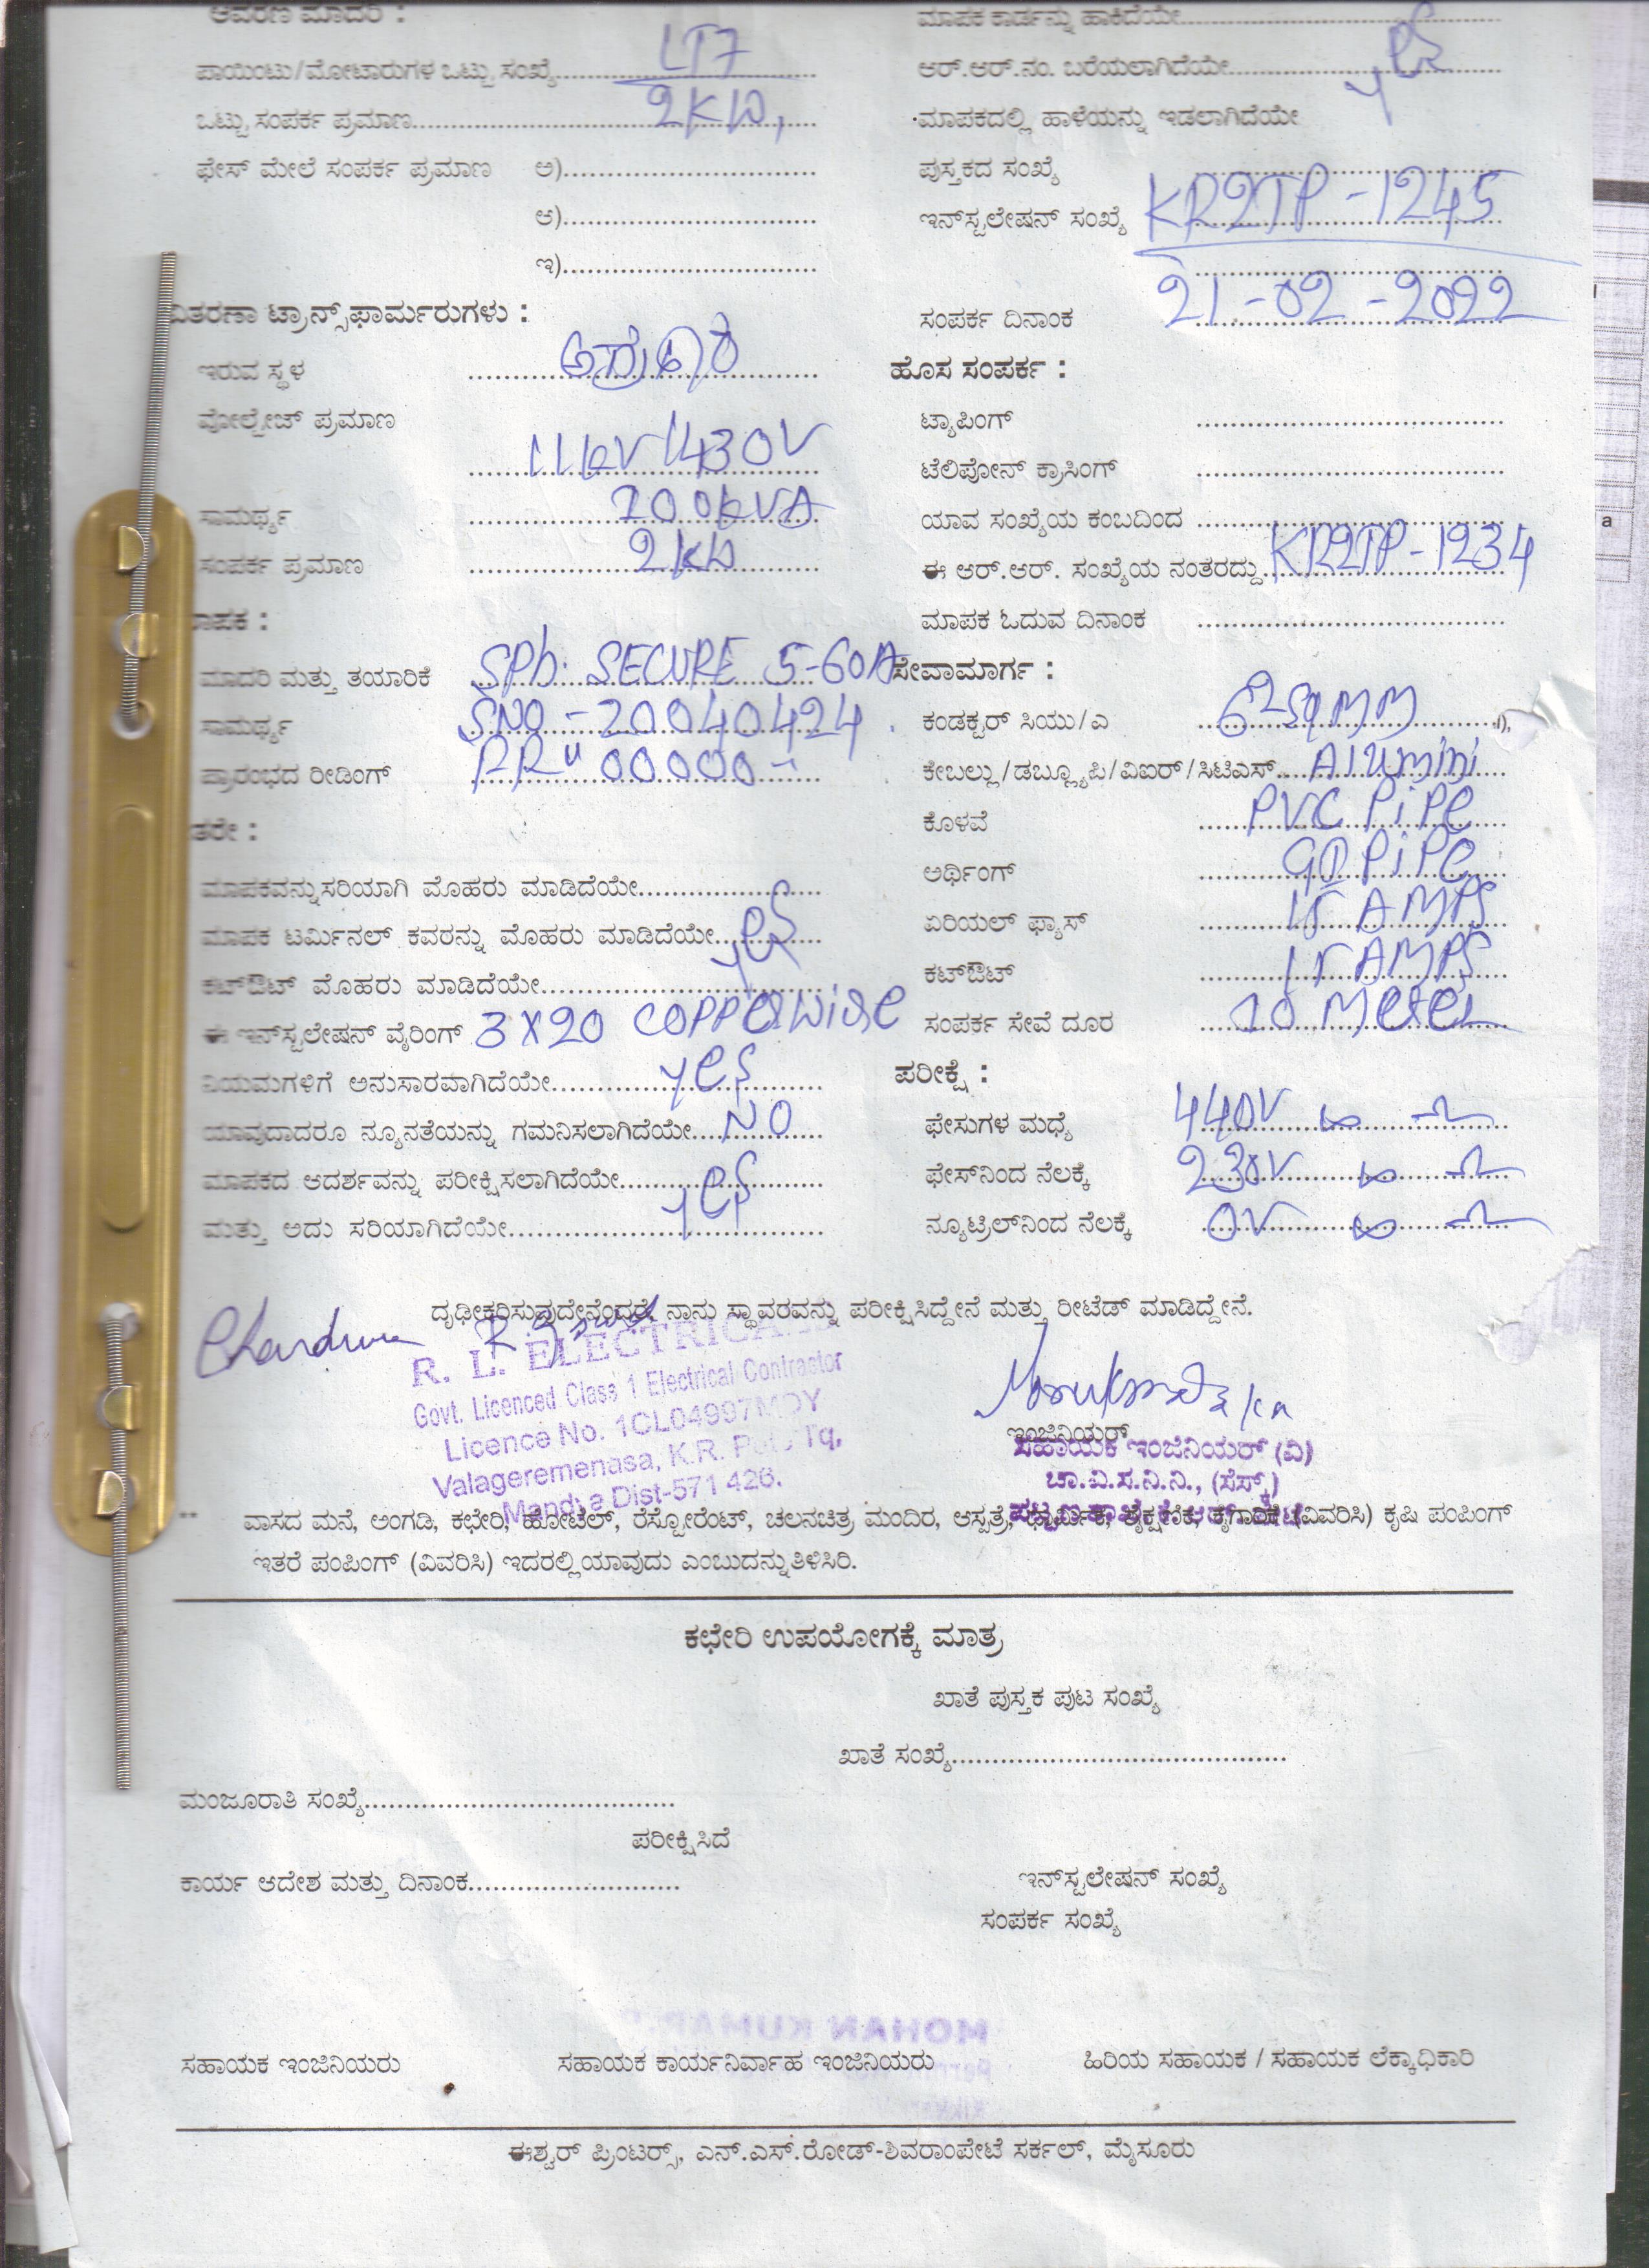 ಆವರಣ ಮಾದರಿ :
ಪಾಯಿಂಟು/ಮೋಟಾರುಗಳ ಒಟ್ಟು ಸಂಖ್ಯೆ LT7
ಒಟ್ಟು ಸಂಪರ್ಕ ಪ್ರಮಾಣ 2KW,
ಫೇಸ್ ಮೇಲೆ ಸಂಪರ್ಕ ಪ್ರಮಾಣ ಅ)
ಆ)
ಇ)
ವಿತರಣಾ ಟ್ರಾನ್ಸ್‌ಫಾರ್ಮರುಗಳು :
ಇರುವ ಸ್ಥಳ
ವೋಲ್ಟೇಜ್ ಪ್ರಮಾಣ
11kV/430V
ಸಾಮರ್ಥ್ಯ 100KVA
ಸಂಪರ್ಕ ಪ್ರಮಾಣ 2KW
ಮಾಪಕ :
ಮಾದರಿ ಮತ್ತು ತಯಾರಿಕೆ SPh. SECURE 5-60A
ಸಾಮರ್ಥ್ಯ SNO - 20040424
ಪ್ರಾರಂಭದ ರೀಡಿಂಗ್ 00000-
ಇತರೇ :
ಮಾಪಕವನ್ನುಸರಿಯಾಗಿ ಮೊಹರು ಮಾಡಿದೆಯೇ
ಮಾಪಕ ಟರ್ಮಿನಲ್ ಕವರನ್ನು ಮೊಹರು ಮಾಡಿದೆಯೇ yes
ಕಟ್‌ಔಟ್ ಮೊಹರು ಮಾಡಿದೆಯೇ
ಈ ಇನ್‌ಸ್ಟಲೇಷನ್ ವೈರಿಂಗ್ 3X20 COPPER WIRE
ನಿಯಮಗಳಿಗೆ ಅನುಸಾರವಾಗಿದೆಯೇ yes
ಯಾವುದಾದರೂ ನ್ಯೂನತೆಯನ್ನು ಗಮನಿಸಲಾಗಿದೆಯೇ NO
ಮಾಪಕದ ಆದರ್ಶವನ್ನು ಪರೀಕ್ಷಿಸಲಾಗಿದೆಯೇ yes
ಮತ್ತು ಅದು ಸರಿಯಾಗಿದೆಯೇ
ಮಾಪಕ ಕಾರ್ಡನ್ನು ಹಾಕಿದೆಯೇ
ಆರ್.ಆರ್.ನಂ. ಬರೆಯಲಾಗಿದೆಯೇ yes
ಮಾಪಕದಲ್ಲಿ ಹಾಳೆಯನ್ನು ಇಡಲಾಗಿದೆಯೇ
ಪುಸ್ತಕದ ಸಂಖ್ಯೆ
ಇನ್‌ಸ್ಟಲೇಷನ್ ಸಂಖ್ಯೆ KR2TP-1245
ಸಂಪರ್ಕ ದಿನಾಂಕ 21-02-2022
ಹೊಸ ಸಂಪರ್ಕ :
ಟ್ಯಾಪಿಂಗ್
ಟೆಲಿಪೋನ್ ಕ್ರಾಸಿಂಗ್
ಯಾವ ಸಂಖ್ಯೆಯ ಕಂಬದಿಂದ
ಈ ಆರ್.ಆರ್. ಸಂಖ್ಯೆಯ ನಂತರದ್ದು KR2TP-1234
ಮಾಪಕ ಓದುವ ದಿನಾಂಕ
ಸೇವಾಮಾರ್ಗ :
ಕಂಡಕ್ಟರ್ ಸಿಯು/ಎ Sqmm
ಕೇಬಲ್ಲು/ಡಬ್ಲ್ಯೂಪಿ/ವಿಐರ್/ಸಿಟಿಎಸ್ Alumini
ಕೊಳವೆ PVC PIPE
ಅರ್ಥಿಂಗ್ GI PIPE
ಏರಿಯಲ್ ಫ್ಯಾಸ್ 15 AMPS
ಕಟ್‌ಔಟ್ 15 AMPS
ಸಂಪರ್ಕ ಸೇವೆ ದೂರ 10 Meter
ಪರೀಕ್ಷೆ :
ಫೇಸುಗಳ ಮಧ್ಯೆ 440V ∞ Ω
ಫೇಸ್‌ನಿಂದ ನೆಲಕ್ಕೆ 230V ∞ Ω
ನ್ಯೂಟ್ರಿಲ್‌ನಿಂದ ನೆಲಕ್ಕೆ 0V ∞ Ω
ದೃಢೀಕರಿಸುವುದೇನೆಂದರೆ, ನಾನು ಸ್ಥಾವರವನ್ನು ಪರೀಕ್ಷಿಸಿದ್ದೇನೆ ಮತ್ತು ರೀಟೆಡ್ ಮಾಡಿದ್ದೇನೆ.
R. L. ELECTRICALS
Govt. Licenced Class 1 Electrical Contractor
Licence No. 1CL04997MDY
Valageremenasa, K.R. Pet Tq,
Mandya Dist-571 426.
ಇಂಜಿನಿಯರ್
ಸಹಾಯಕ ಇಂಜಿನಿಯರ್ (ವಿ)
ಚಾ.ವಿ.ಸ.ನಿ.ನಿ., (ಸೆಸ್ಕ್)
** ವಾಸದ ಮನೆ, ಅಂಗಡಿ, ಕಛೇರಿ, ಹೋಟೆಲ್, ರೆಸ್ಟೋರೆಂಟ್, ಚಲನಚಿತ್ರ ಮಂದಿರ, ಆಸ್ಪತ್ರೆ, ಧಾರ್ಮಿಕ, ಶೈಕ್ಷಣಿಕ, ಕೈಗಾರಿಕೆ (ವಿವರಿಸಿ) ಕೃಷಿ ಪಂಪಿಂಗ್
ಇತರೆ ಪಂಪಿಂಗ್ (ವಿವರಿಸಿ) ಇದರಲ್ಲಿಯಾವುದು ಎಂಬುದನ್ನುತಿಳಿಸಿರಿ.
ಕಛೇರಿ ಉಪಯೋಗಕ್ಕೆ ಮಾತ್ರ
ಖಾತೆ ಪುಸ್ತಕ ಪುಟ ಸಂಖ್ಯೆ
ಖಾತೆ ಸಂಖ್ಯೆ
ಮಂಜೂರಾತಿ ಸಂಖ್ಯೆ
ಪರೀಕ್ಷಿಸಿದೆ
ಕಾರ್ಯ ಆದೇಶ ಮತ್ತು ದಿನಾಂಕ
ಇನ್‌ಸ್ಟಲೇಷನ್ ಸಂಖ್ಯೆ
ಸಂಪರ್ಕ ಸಂಖ್ಯೆ
ಸಹಾಯಕ ಇಂಜಿನಿಯರು ಸಹಾಯಕ ಕಾರ್ಯನಿರ್ವಾಹ ಇಂಜಿನಿಯರು ಹಿರಿಯ ಸಹಾಯಕ / ಸಹಾಯಕ ಲೆಕ್ಕಾಧಿಕಾರಿ
ಈಶ್ವರ್ ಪ್ರಿಂಟರ್ಸ್, ಎನ್.ಎಸ್.ರೋಡ್-ಶಿವರಾಂಪೇಟೆ ಸರ್ಕಲ್, ಮೈಸೂರು